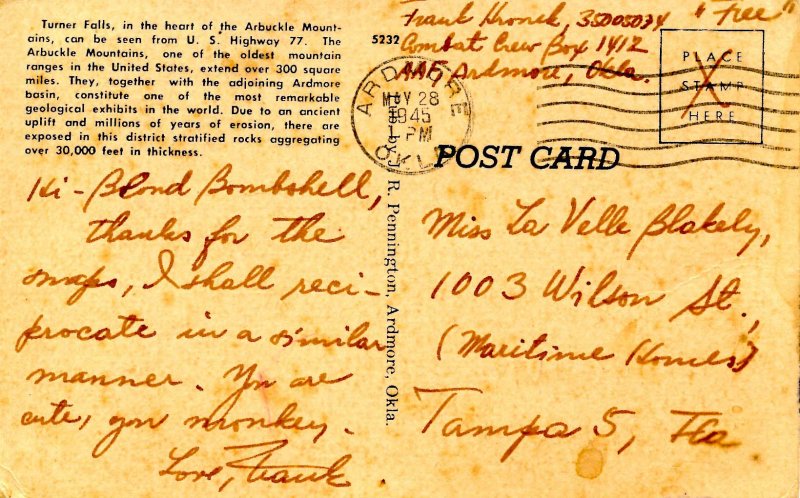 Turner Falls, in the heart of the Arbuckle Mount-
ains, can be seen from U. S. Highway 77. The
Arbuckle Mountains, one of the oldest mountain
ranges in the United States, extend over 300 square
miles. They, together with the adjoining Ardmore
basin, constitute one of the most remarkable
geological exhibits in the world. Due to an ancient
uplift and millions of years of erosion, there are
exposed in this district stratified rocks aggregating
over 30,000 feet in thickness.
Hi - Blond Bombshell,
thanks for the
snaps, I shall reci-
procate in a similar
manner. You are
cute, you monkey.
Love, Frank
5232
by R. Pennington, Ardmore, Okla.
Frank 35005034 "Free"
Combat Crew Box 1412
AAF, Ardmore, Okla.
ARDMORE
MAY 28
1945
1 PM
OKLA
PLACE
STAMP
HERE
POST CARD
Miss La Velle Blakely,
1003 Wilson St.,
(Maritime Homes)
Tampa 5, Fla